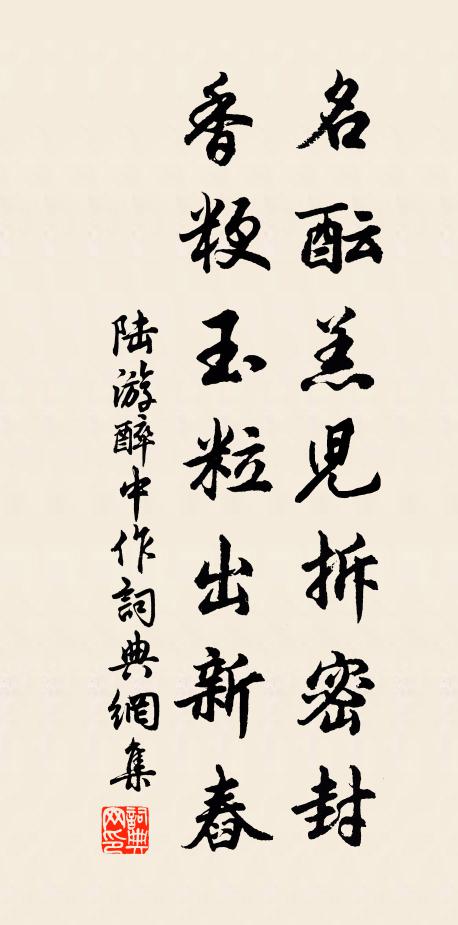 名酝羔児拆密封
香粳玉粒出新舂
陆游醉中作詞典網集
詞典网印